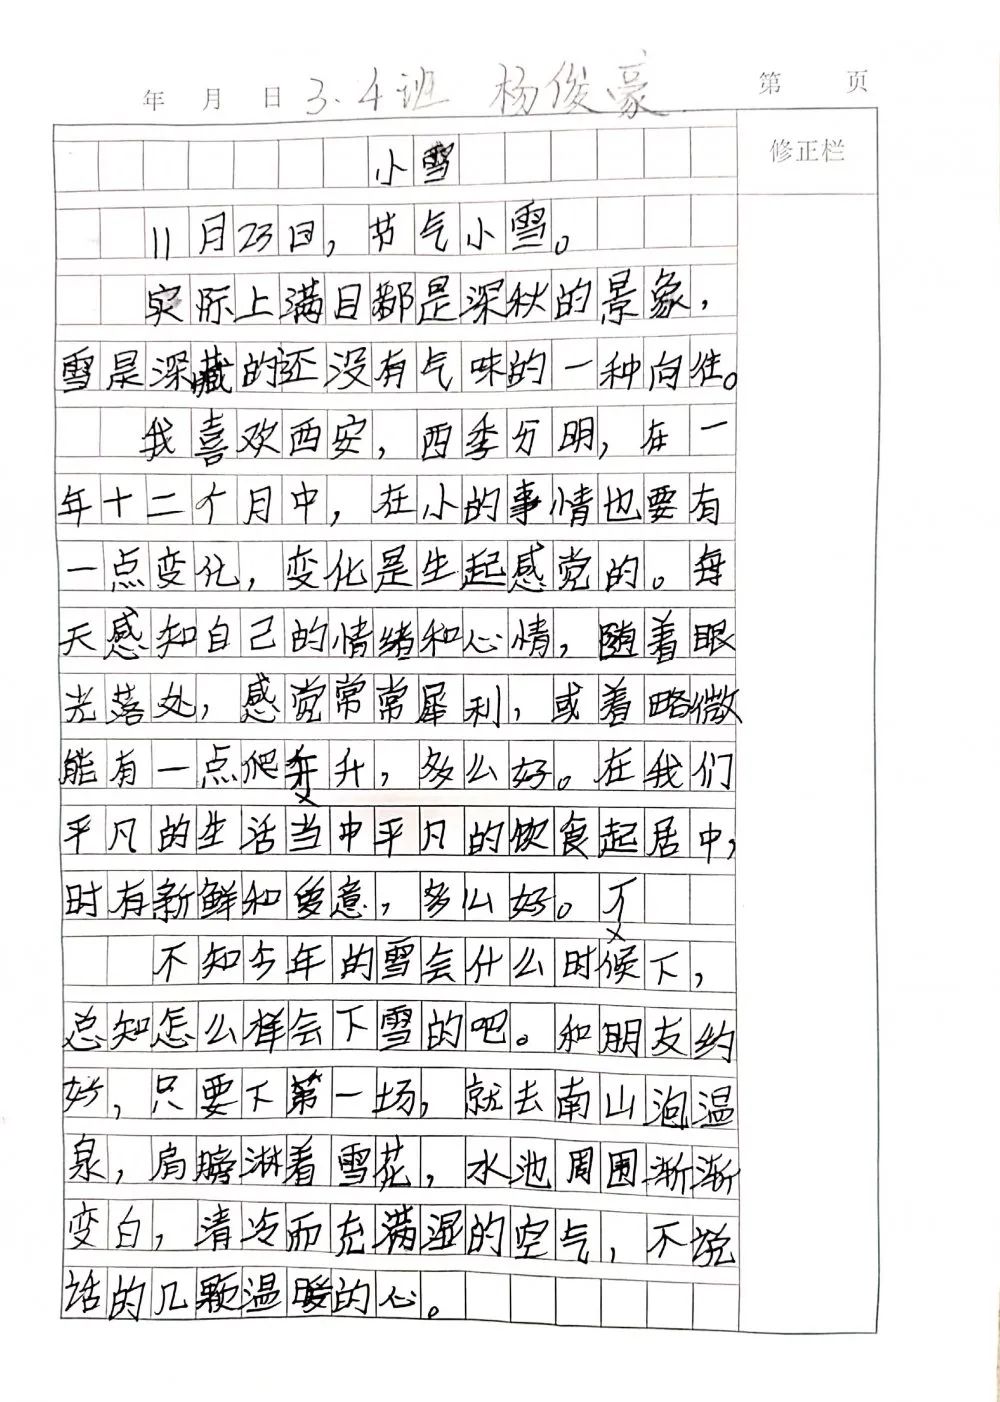 年 月 日 3.4班 杨俊豪 第 页
修正栏
小雪
11月23日，节气小雪。
实际上满目都是深秋的景象，
雪是深藏的还没有气味的一种向往。
我喜欢西安，四季分明，在一
年十二个月中，在小的事情也要有
一点变化，变化是生起感觉的。每
天感知自己的情绪和心情，随着眼
光落处，感觉常常犀利，或着略微
能有一点爬升，多么好。在我们
平凡的生活当中平凡的饮食起居中，
时有新鲜和爱意，多么好。
不知今年的雪会什么时候下，
总知怎么样会下雪的吧。和朋友约
好，只要下第一场，就去南山泡温
泉，肩膀淋着雪花，水池周围渐渐
变白，清冷而充满湿的空气，不说
话的几颗温暖的心。